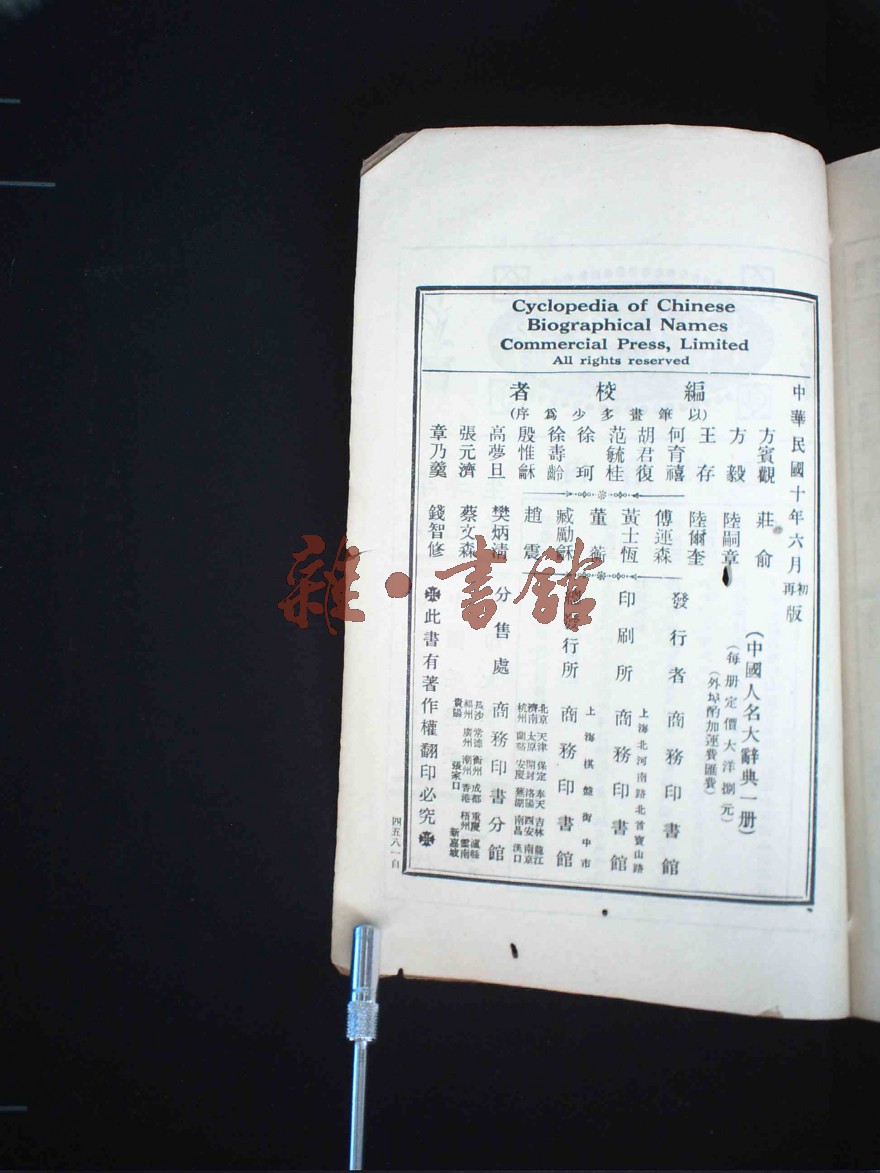 Cyclopedia of Chinese
Biographical Names
Commercial Press, Limited
All rights reserved
中華民國十年六月初再版
(中國人名大辭典一册)
(每册定價大洋捌元)
(外埠酌加運費匯費)
編校者
(以筆畫多少爲序)
方賓觀
方毅
王存
何育禧
胡君復
范毓桂
徐珂
徐壽齡
殷惟龢
高夢旦
張元濟
章乃羹
莊俞
陸嗣章
陸爾奎
傅運森
黃士恆
董
臧勵龢
趙震
樊炳清
蔡文森
錢智修
發行者 商務印書館
印刷所 上海北河南路北首寶山路 商務印書館
發行所 上海棋盤街中市 商務印書館
分售處 商務印書分館
北京 天津 保定 奉天 吉林 龍江
濟南 太原 開封 洛陽 西安 南京
杭州 蘭谿 安慶 蕪湖 南昌 漢口
長沙 常德 衡州 成都 重慶 瀘縣
福州 廣州 潮州 香港 梧州 雲南
貴陽 張家口 新嘉坡
此書有著作權翻印必究
四五八一自
雜·書館